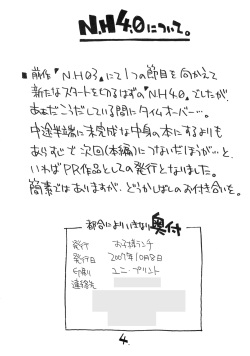 N.H4.0について。
■ 前作『N.H03』にて1つの節目を向かえて
新たなスタートを切るはずの『N.H4.0』でしたが、
あぁだこうだしている間にタイムオーバー…。
中途半端に未完成な中身の本にするよりも
あらすじで次回(本編)につないだほうが…と、
いわばPR作品としての発行となりました。
簡素ではありますが、どうかしばしのお付き合いを。
都合によりいきなり奥付
発行 お子様ランチ
発行日 2007年10月8日
印刷 ユニ・プリント
連絡先
4.